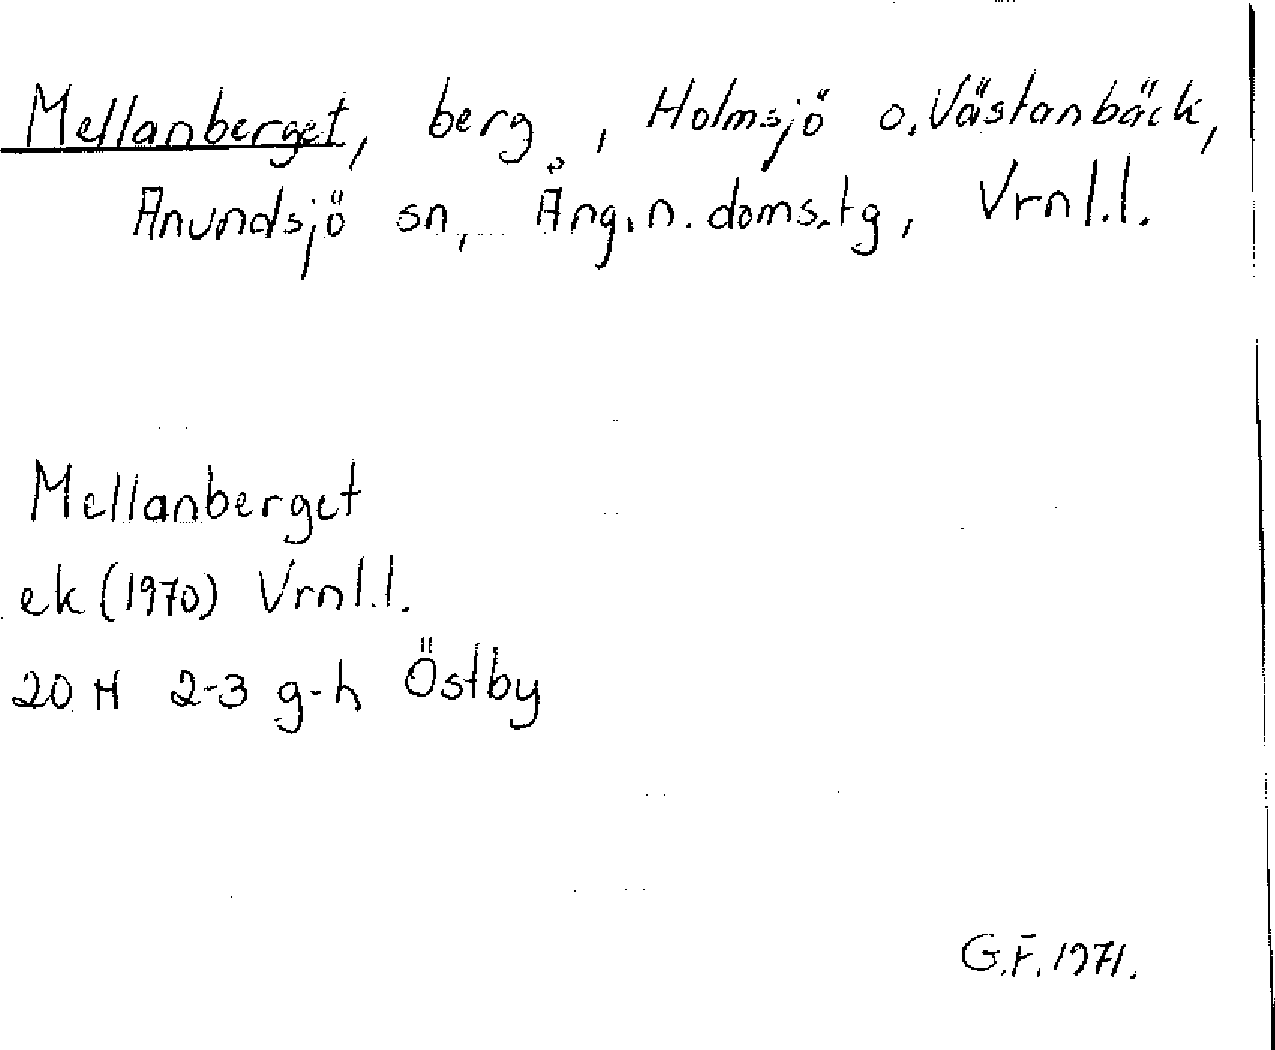 Mellanberget, berg, Holmsjö o. Västanbäck,
Anundsjö sn, Ång. n. doms.tg, Vrnl.l.
Mellanberget
ek (1970) Vrnl.l.
20 H 2-3 g-h Östby
G.F. 1971.